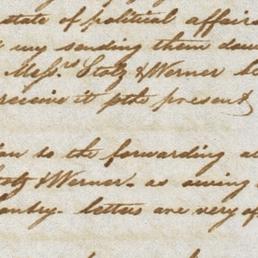 state of political affairs
my sending them dow
Messrs Stolz & Werner be
receive it pthe present
to the forwarding a
Stolz & Werner - as owing
country - letters are very of